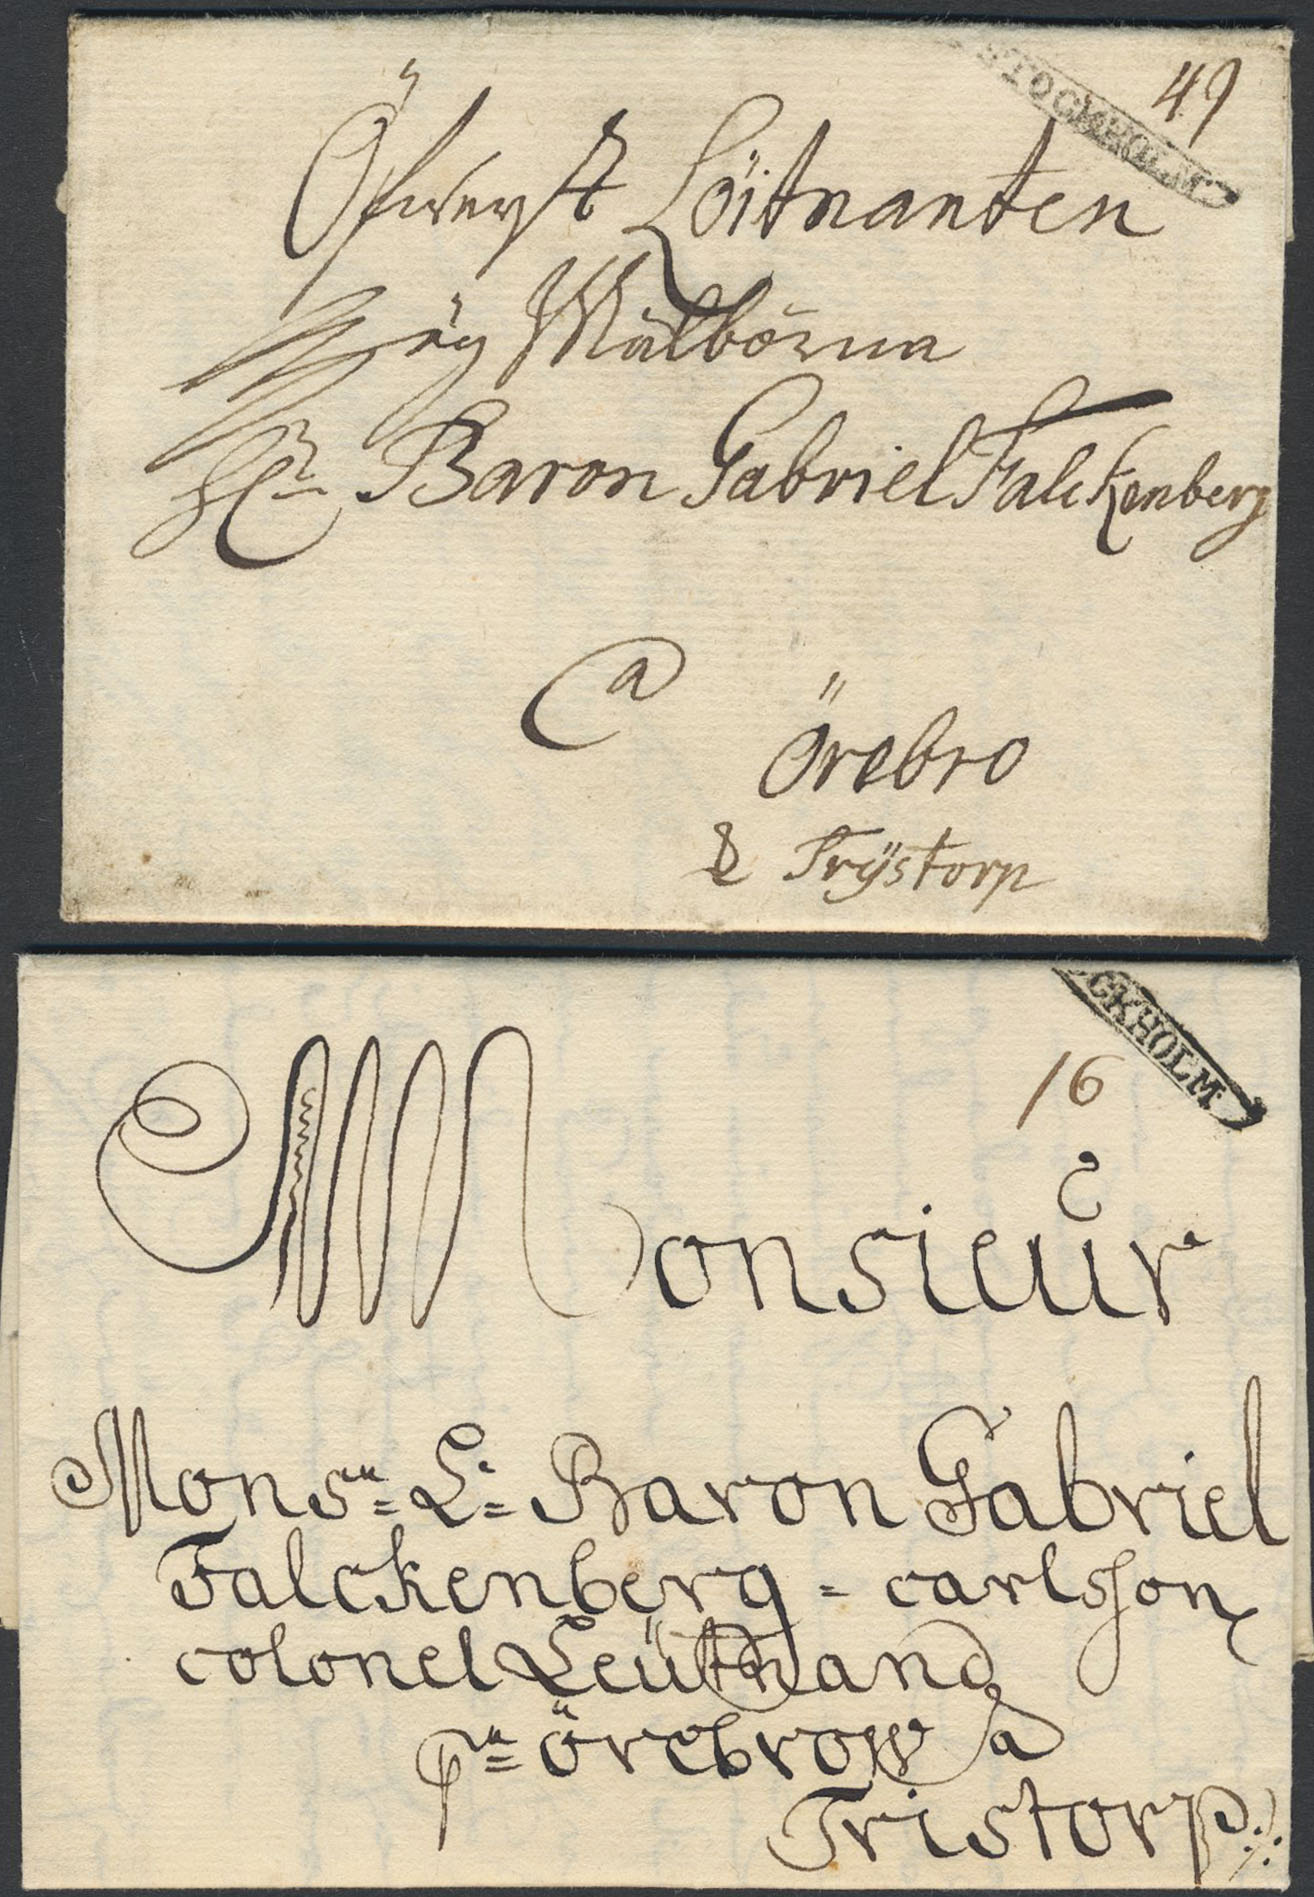 STOCKHOLM
49
Öfwerst Löitnanten
Hög Wälborna
Hr Baron Gabriel Falckenberg
a
Örebro
& Trÿstorp
CKHOLM
16
Monsieur
Monsr= L:= Baron Gabriel
Falckenberg = carlsson
colonel Leütnand
pr= örebrow a
Tristorp